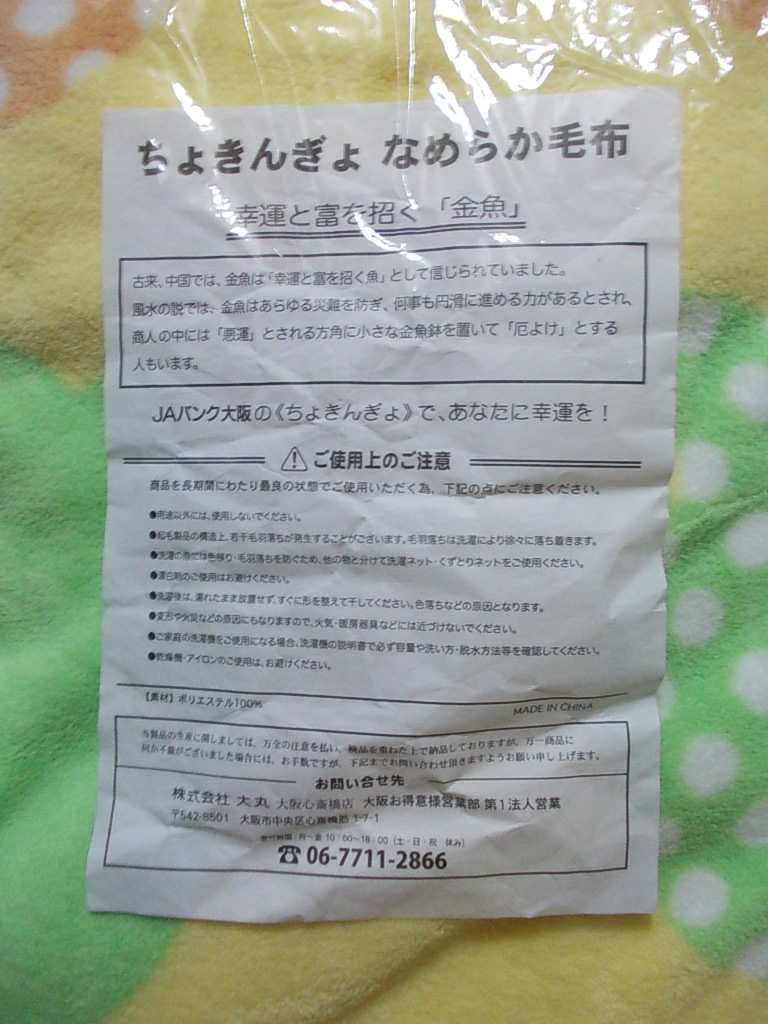 ちょきんぎょ なめらか毛布
幸運と富を招く「金魚」
古来、中国では、金魚は「幸運と富を招く魚」として信じられていました。
風水の説では、金魚はあらゆる災難を防ぎ、何事も円滑に進める力があるとされ、
商人の中には「悪運」とされる方角に小さな金魚鉢を置いて「厄よけ」とする
人もいます。
JAバンク大阪の《ちょきんぎょ》で、あなたに幸運を!
ご使用上のご注意
商品を長期間にわたり最良の状態でご使用いただく為、下記の点にご注意ください。
●用途以外には、使用しないでください。
●起毛製品の構造上、若干毛羽落ちが発生することがございます。毛羽落ちは洗濯により徐々に落ち着きます。
●洗濯の際には色移り・毛羽落ちを防ぐため、他の物と分けて洗濯ネット・くずとりネットをご使用ください。
●漂白剤のご使用はお避けください。
●洗濯後は、濡れたまま放置せず、すぐに形を整えて干してください。色落ちなどの原因となります。
●変形や火災などの原因にもなりますので、火気・暖房器具などには近づけないでください。
●ご家庭の洗濯機をご使用になる場合、洗濯機の説明書で必ず容量や洗い方・脱水方法等を確認してください。
●乾燥機・アイロンのご使用は、お避けください。
【素材】ポリエステル100% MADE IN CHINA
当製品の生産に関しましては、万全の注意を払い、検品を重ねた上で納品しておりますが、万一商品に
何か不備がございました場合には、お手数ですが、下記までお問い合わせ頂きますようお願い申し上げます。
お問い合せ先
株式会社 大丸 大阪心斎橋店 大阪お得意様営業部 第1法人営業
〒542-8501 大阪市中央区心斎橋筋 1-7-1
受付時間:月~金 10:00~18:00 (土・日・祝 休み)
☎06-7711-2866